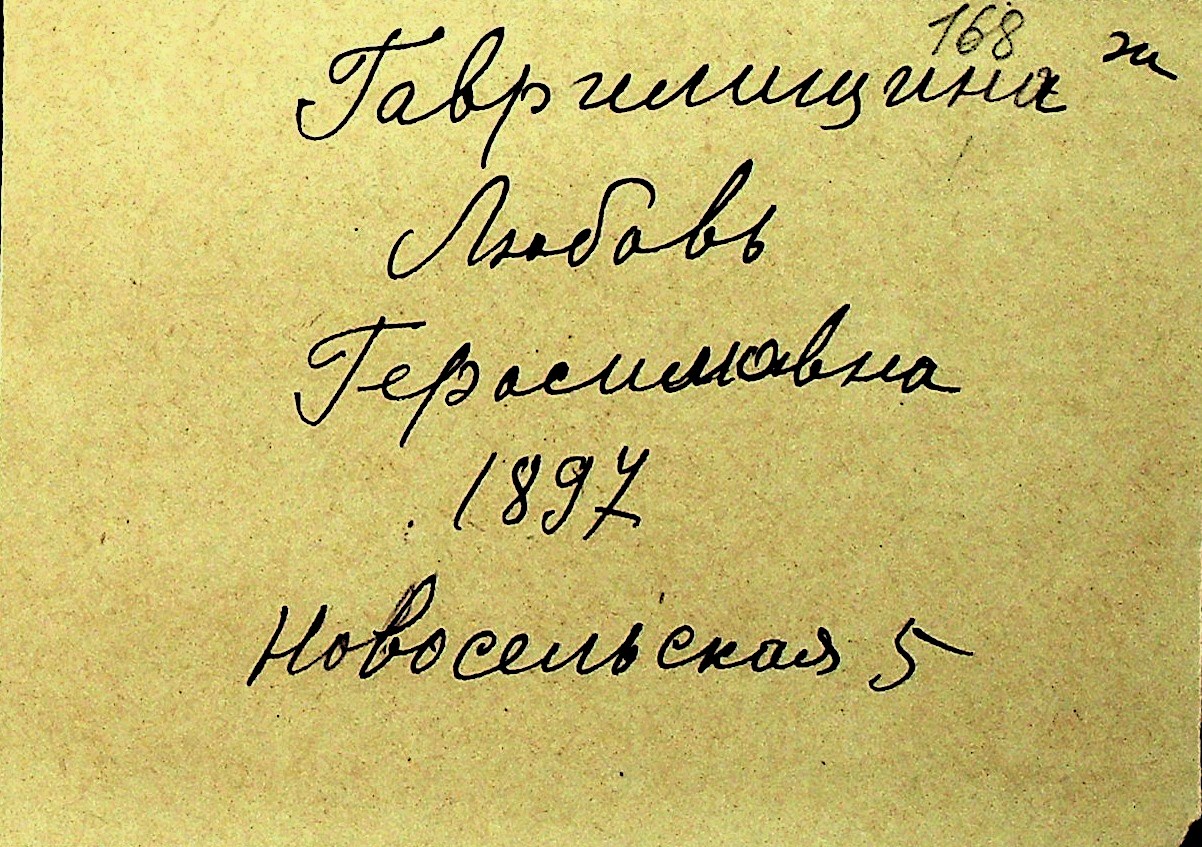 168
Гаврилищина
Любовь
Герасимовна
1897
Новосельская 5